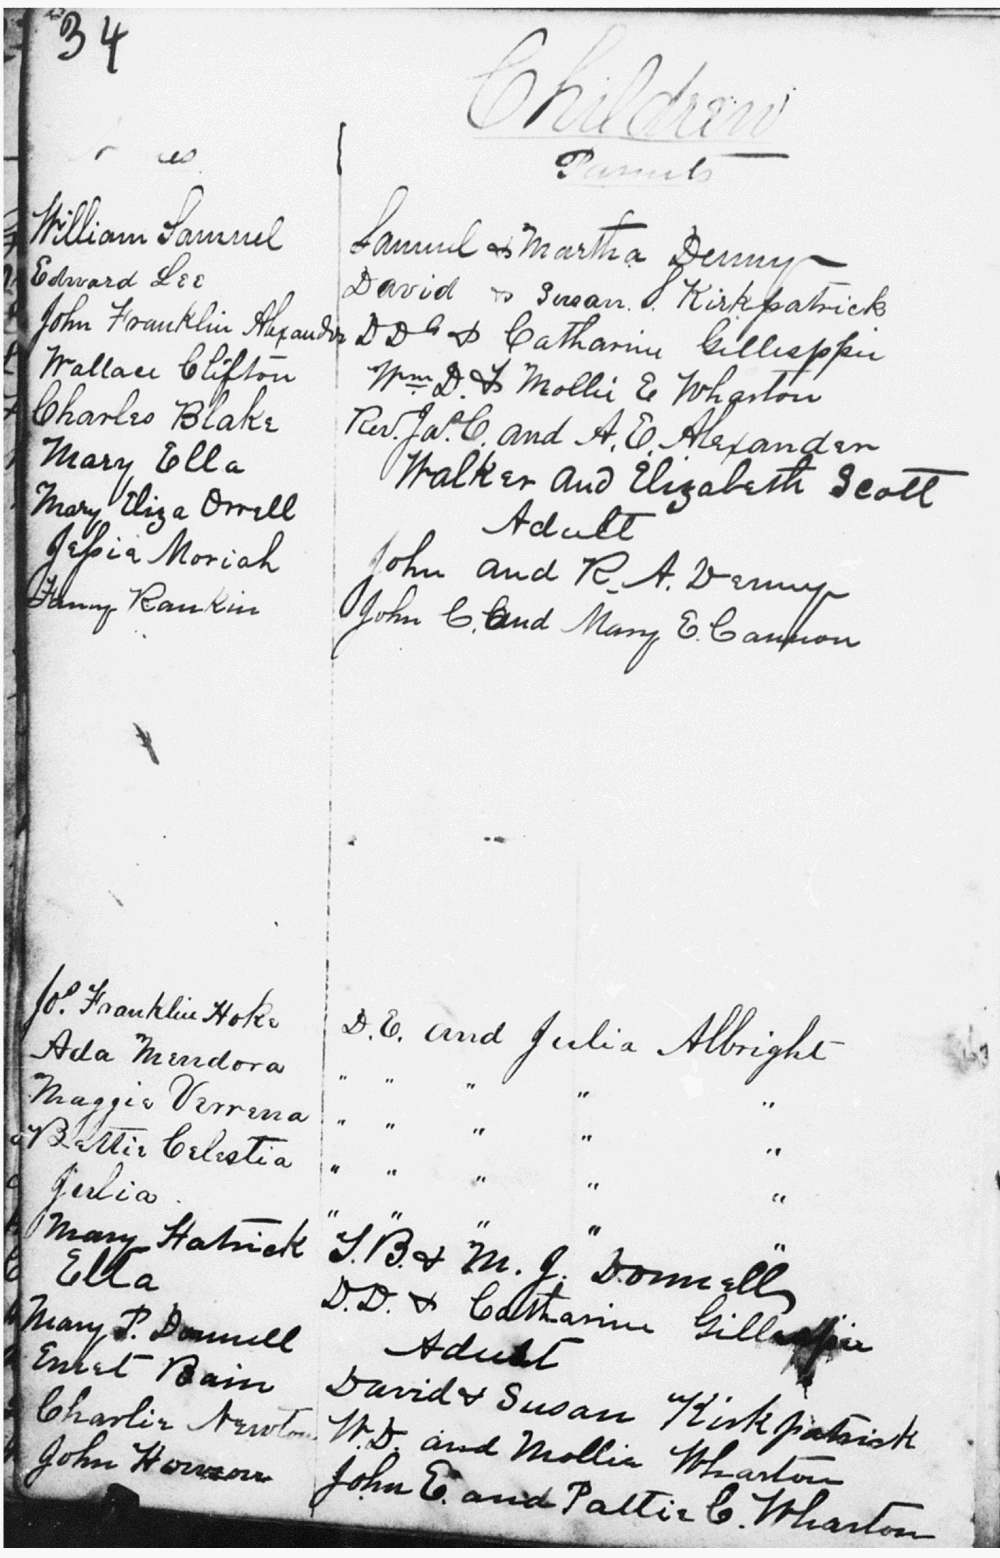 34
Children
Parents
William Samuel Samuel & Martha Denny
Edward Lee David & Susan Kirkpatrick
John Franklin Alexander D D G & Catharine Gillesppie
Wallace Clifton Wm D. & Mollie E Wharton
Charles Blake Rev. Jas. C. and A. E. Alexander
Mary Ella Walker and Elizabeth Scott
Mary Eliza Orrell Adult
Jessie Moriah John and R. A. Denny
Fanny Rankin John C. and Mary E. Cannon
Jos. Franklin Hoke D. E. and Julia Albright
Ada Mendora " " " " "
Maggie Verrena " " " " "
Bettie Celestia " " " " "
Julia " " " " "
Mary Hatrick S. B. & M. J. Donnell
Ella D. D. & Catharine Gillespie
Mary P. Donnell Adult
Ernest Bain David & Susan Kirkpatrick
Charlie Newton W. D. and Mollie Wharton
John John E. and Pattie C. Wharton